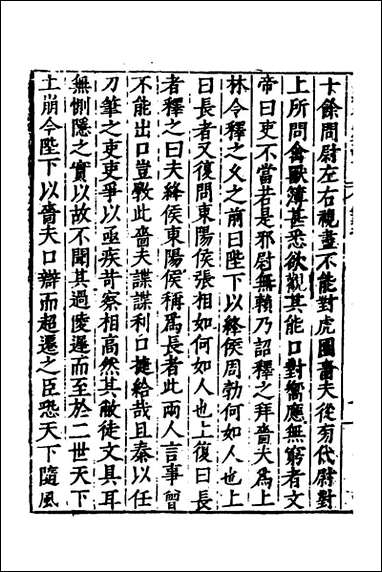 十餘問尉左右視盡不能對虎圈嗇夫從旁代尉對
上所問禽獸簿甚悉欲觀其能口對嚮應無窮者文
帝曰吏不當若是邪尉無賴乃詔釋之拜嗇夫爲上
林令釋之久之前曰陛下以絳侯周勃何如人也上
曰長者又復問東陽侯張相如何如人也上復曰長
者釋之曰夫絳侯東陽侯稱爲長者此兩人言事曾
不能出口豈斆此嗇夫諜諜利口捷給哉且秦以任
刀筆之吏吏爭以亟疾苛察相高然其敝徒文具耳
無惻隱之實以故不聞其過陵遲而至於二世天下
土崩今陛下以嗇夫口辯而超遷之臣恐天下隨風